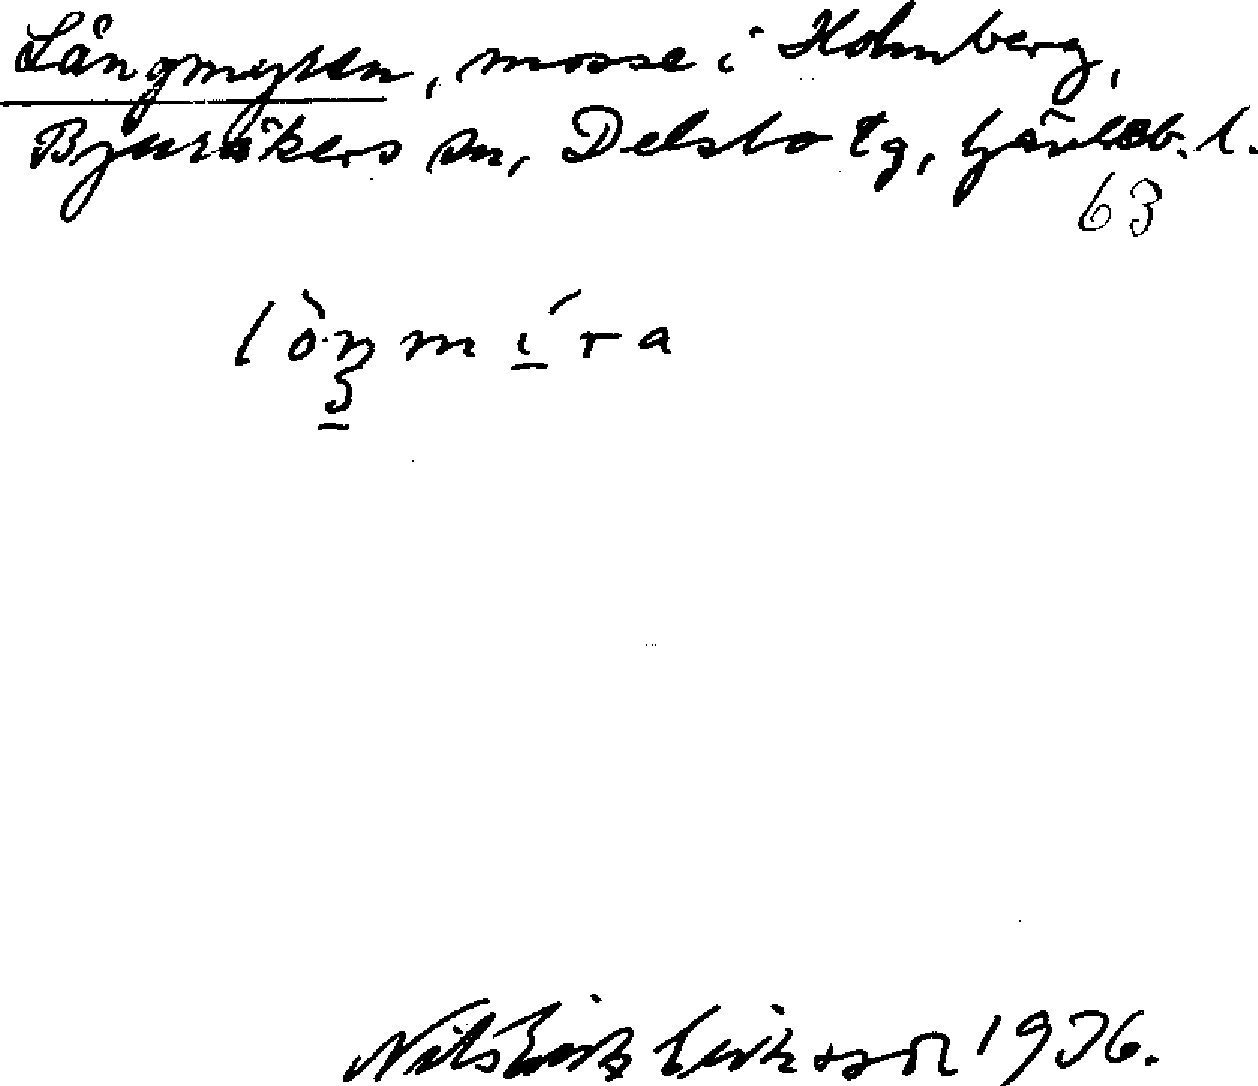 Långmyren, mosse i Holmberg,
Bjuråkers sn, Delsbo tg, Gävleb. l.
63
Nils Erik Eriksson 1936.